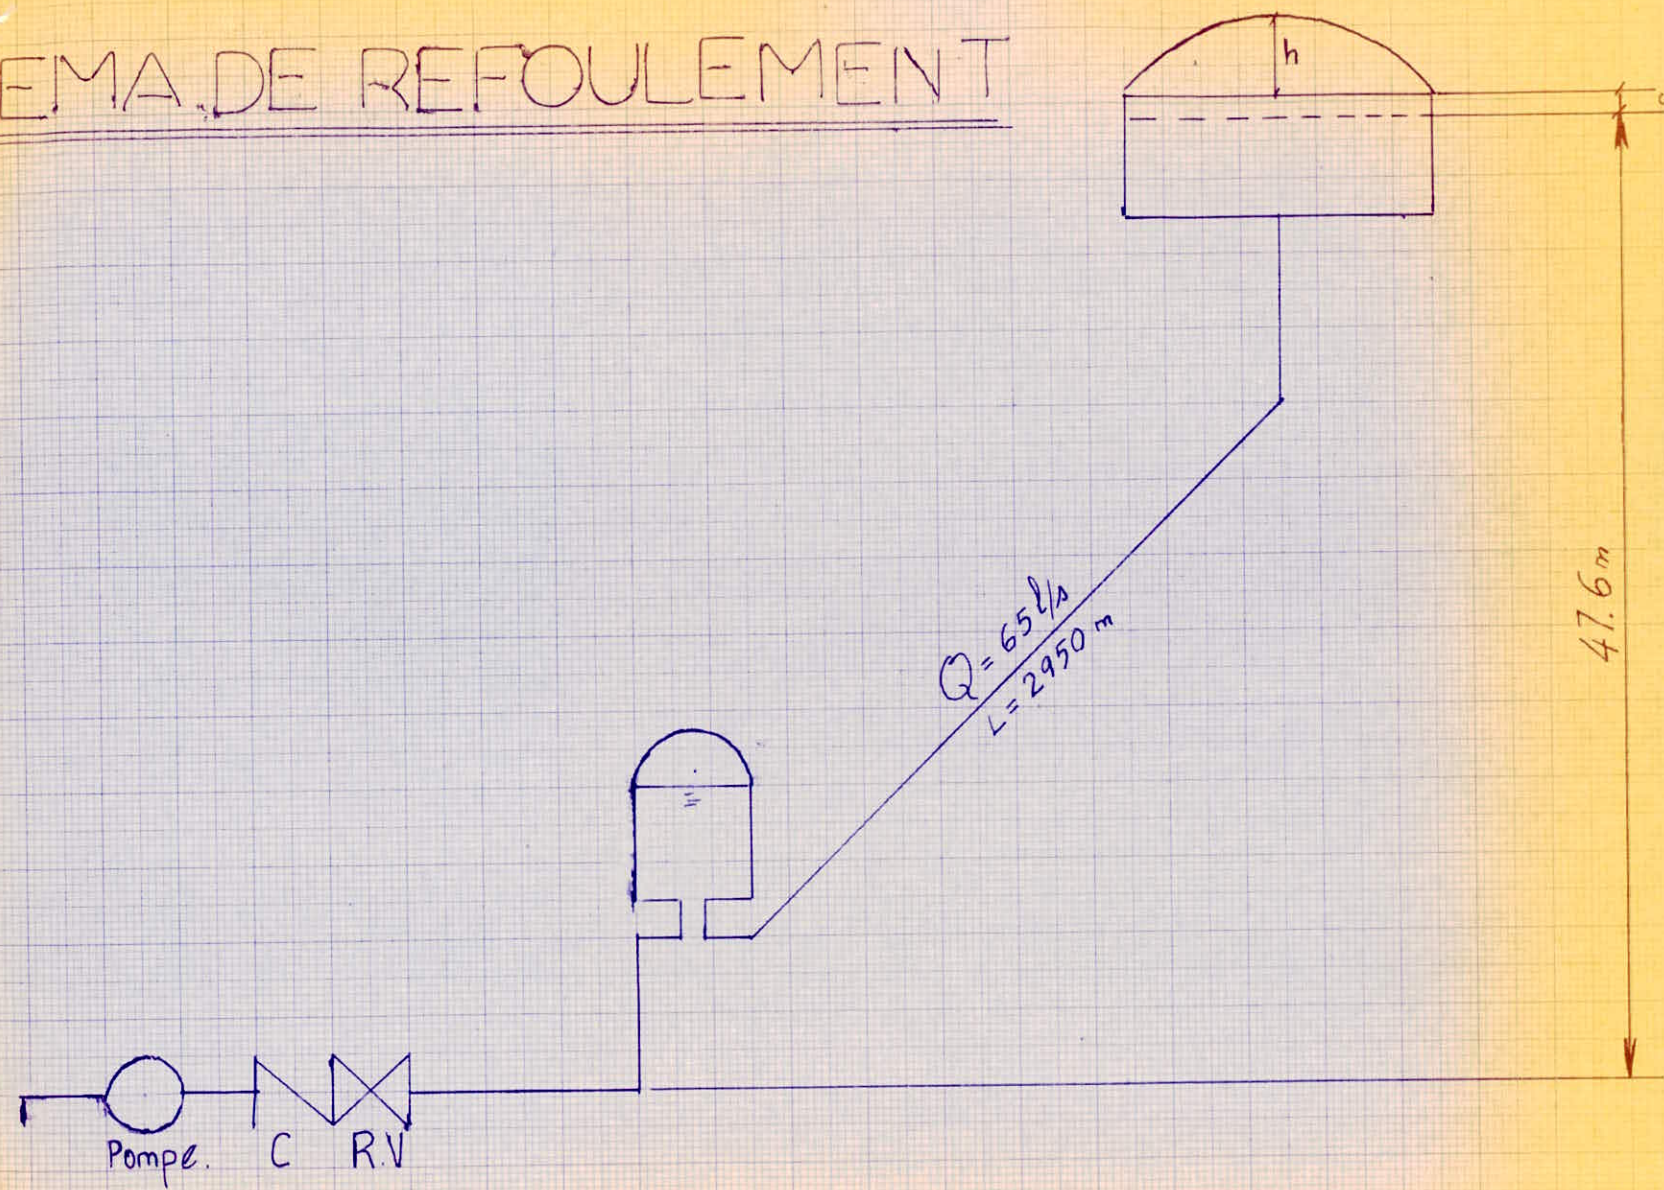 EMA.DE REFOULEMENT
h
47.6m
Q = 65 l/s
L = 2950 m
Pompe. C R.V